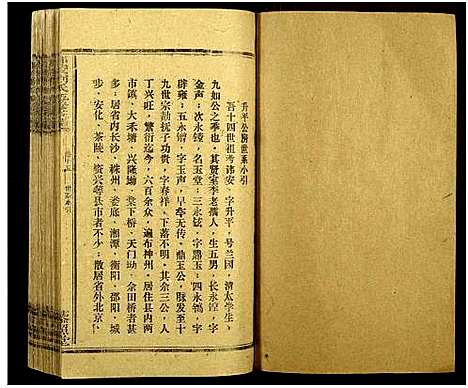 升平公房世系小引
吾十四世祖考讳安、字升平，号兰园，清太学生，
九如公之季也，其贤室李老孺人，生五男，长永锽，字
金声；次永镗，名玉堂；三永铉，字鼎玉；四永鹤，字
辟雍；五永镨，字玉声，早卒无传。鼎玉公，脉发至十
九世宗勋抚子功贵，字春祥，下落不明，其余三公，人
丁兴旺，繁衍迄今，六百余众，遍布神州。居住县内两
市镇、大禾塘、兴隆坳、棠下桥、天门坳、余田桥者甚
多；居省内长沙、株州、娄底、湘潭、衡阳、邵阳、城
步、安化、茶陵、资兴等县市者不少；散居省外北京、